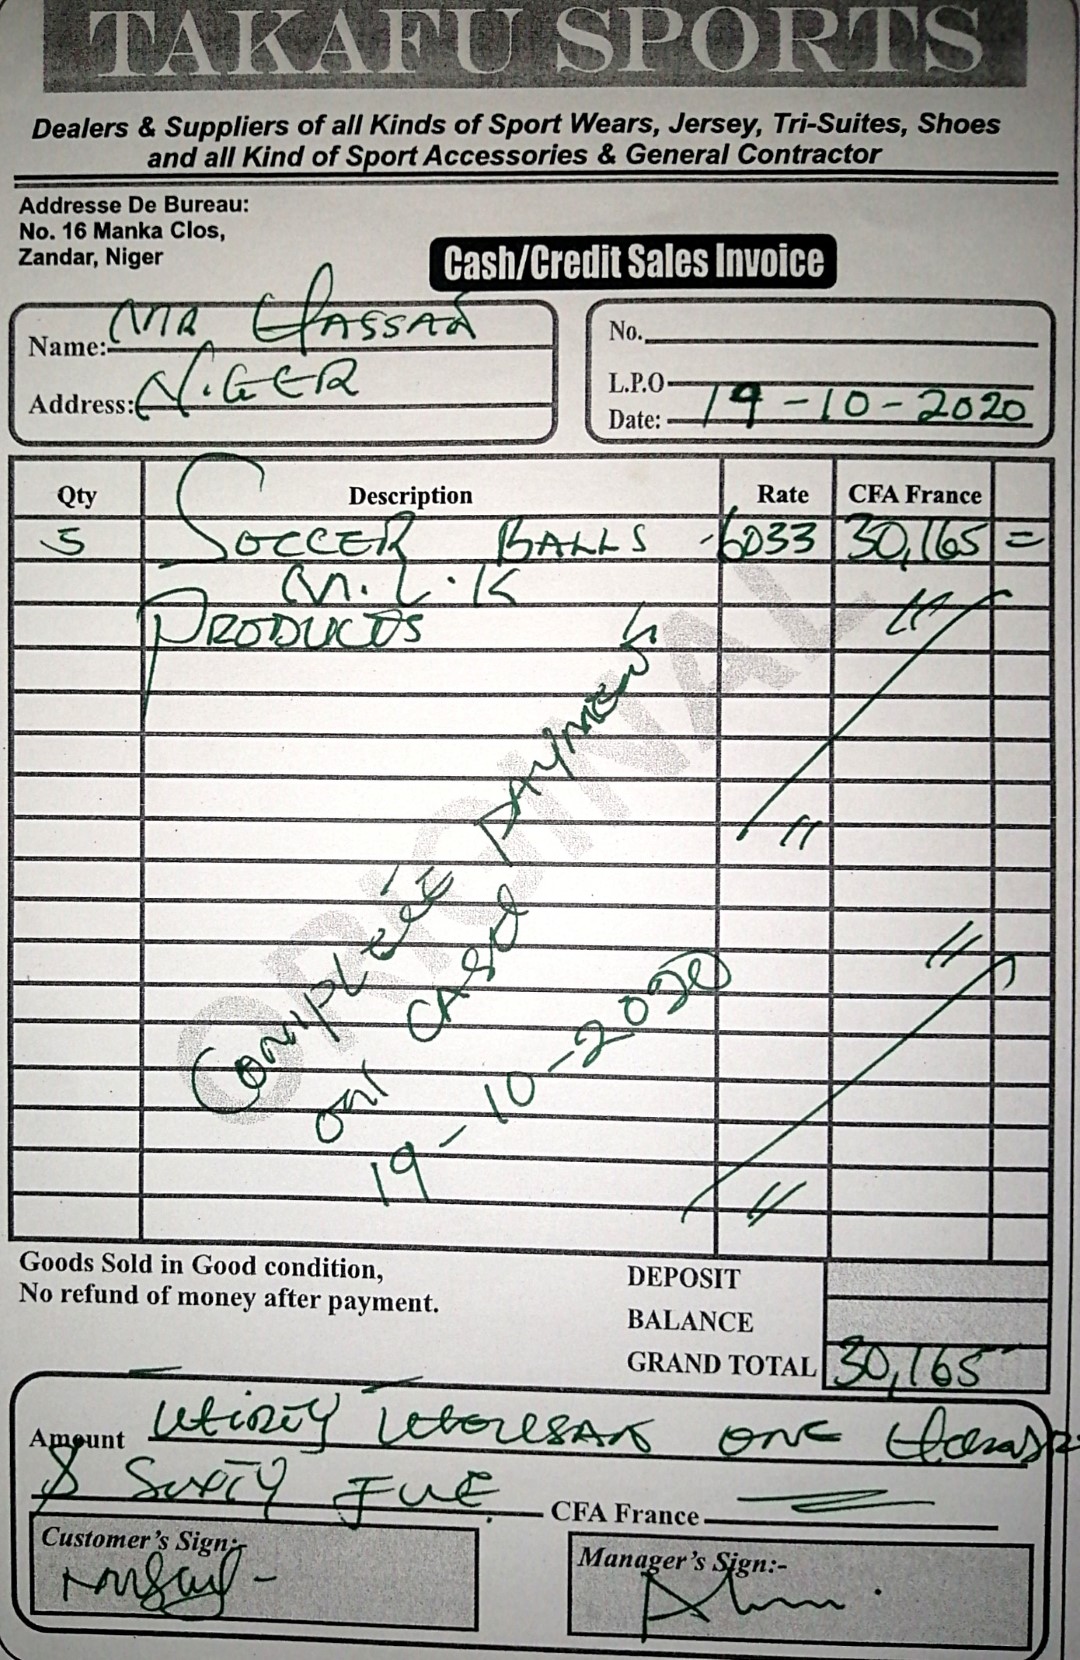 TAKAFU SPORTS
Dealers & Suppliers of all Kinds of Sport Wears, Jersey, Tri-Suites, Shoes
and all Kind of Sport Accessories & General Contractor
Addresse De Bureau:
No. 16 Manka Clos,
Zandar, Niger
Cash/Credit Sales Invoice
Name: MR HASSAN
Address: NIGER
No.
L.P.O
Date: 19-10-2020
Qty Description Rate CFA France
5 SOCCER BALLS 6033 30,165 =
M.L.K
PRODUCTS
ORIGINAL
COMPLETE PAYMENT
ON CASH
19-10-2020
Goods Sold in Good condition,
No refund of money after payment.
DEPOSIT
BALANCE
GRAND TOTAL 30,165
Amount THIRTY THOUSAN ONE
& SIXTY FIVE CFA France
Customer's Sign:-
Manager's Sign:-